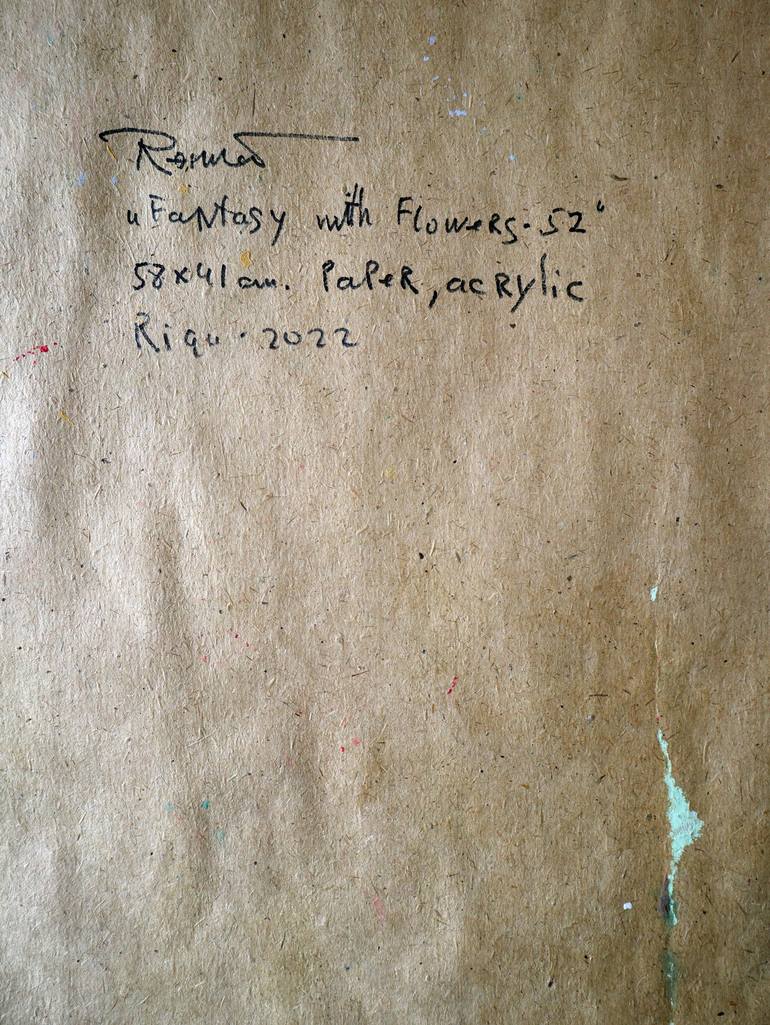 „Fantasy with Flowers-52“
58x41 cm. Paper, acrylic
Riga. 2022